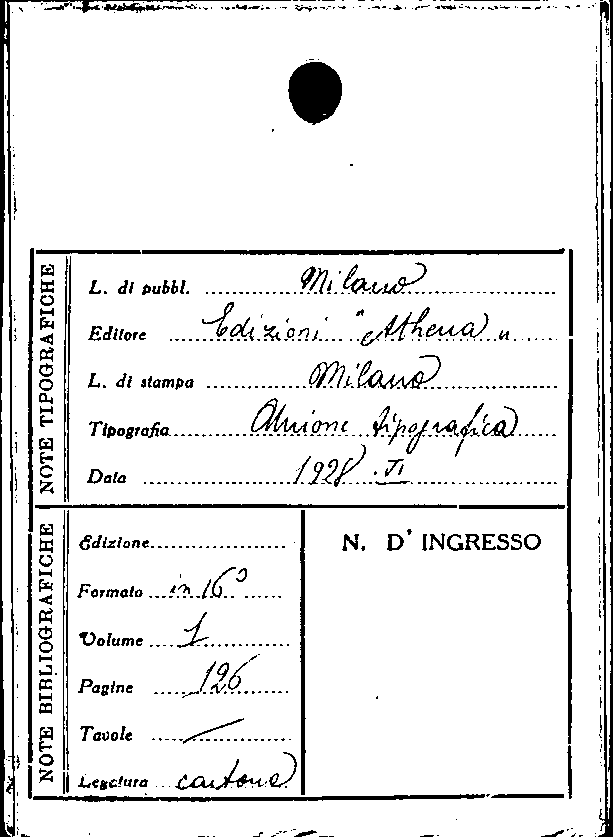 NOTE TIPOGRAFICHE
L. di pubbl. Milano
Editore Edizioni "Athena"
L. di stampa Milano
Tipografia Unione tipografica
Data 1928. VI
NOTE BIBLIOGRAFICHE
Edizione
Formato in 16°
Volume 1
Pagine 126
Tavole /
Legatura cartone
N. D'INGRESSO